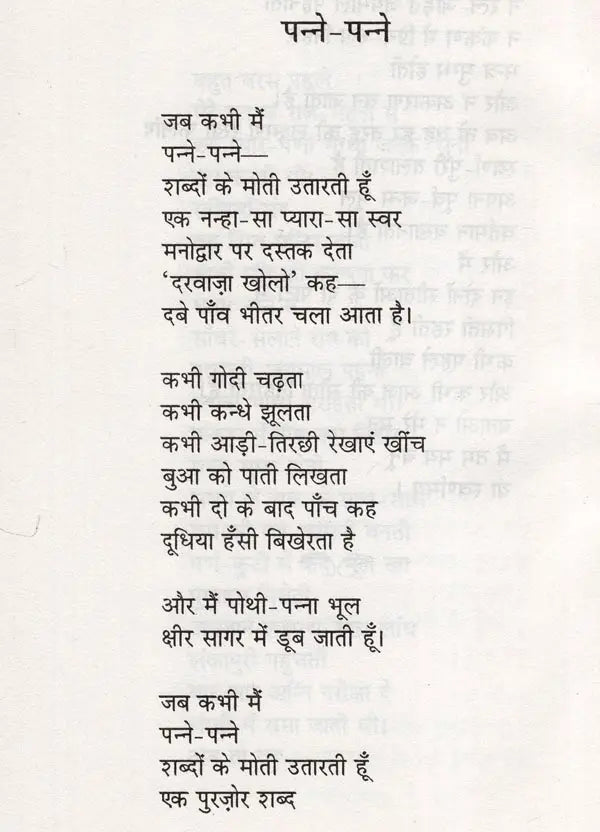 पन्ने-पन्ने
जब कभी मैं
पन्ने-पन्ने—
शब्दों के मोती उतारती हूँ
एक नन्हा-सा प्यारा-सा स्वर
मनोद्वार पर दस्तक देता
‘दरवाज़ा खोलो’ कह—
दबे पाँव भीतर चला आता है।
कभी गोदी चढ़ता
कभी कन्धे झूलता
कभी आड़ी-तिरछी रेखाएं खींच
बुआ को पाती लिखता
कभी दो के बाद पाँच कह
दूधिया हँसी बिखेरता है
और मैं पोथी-पन्ना भूल
क्षीर सागर में डूब जाती हूँ।
जब कभी मैं
पन्ने-पन्ने
शब्दों के मोती उतारती हूँ
एक पुरज़ोर शब्द